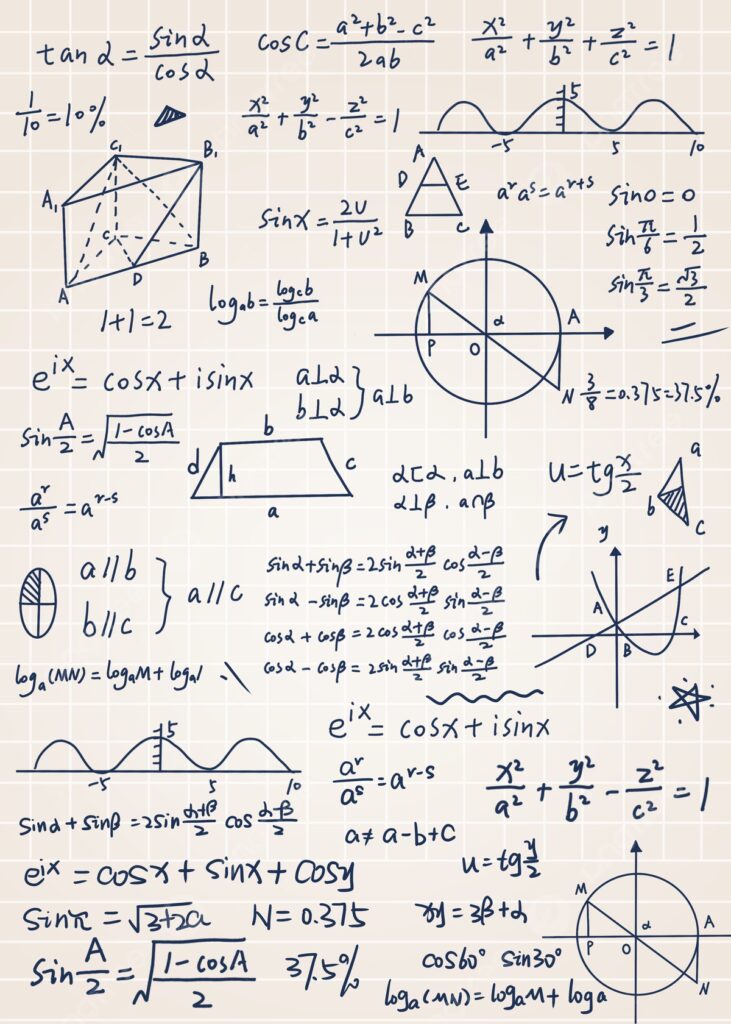 tan α = sinα/cosα
cosC = (a²+b²-c²)/2ab
x²/a² + y²/b² + z²/c² = 1
1/10 = 10%
x²/a² + y²/b² - z²/c² = 1
5
-5 5 10
C₁
B₁
A₁
C
B
D
A
A
D E
B C
aʳaˢ = aʳ⁺ˢ
sin0 = 0
sin π/6 = 1/2
sin π/3 = √3/2
sinx = 2U/(1+U²)
1+1=2
logₐb = log꜀b/log꜀a
M
α A
P O
N
3/8 = 0.375 = 37.5%
eⁱˣ = cosx + isinx
a⊥α
b⊥α } a⊥b
sin A/2 = √((1-cosA)/2)
b
d h c
a
α⊏α, a⊥b
α⊥β . a∩β
u = tg x/2
a
b
c
aʳ/aˢ = aʳ⁻ˢ
a//b
b//c } a//c
sinα+sinβ = 2sin (α+β)/2 cos (α-β)/2
sinα - sinβ = 2cos (α+β)/2 sin (α-β)/2
cosα + cosβ = 2cos (α+β)/2 cos (α-β)/2
cosα - cosβ = 2sin (α+β)/2 sin (α-β)/2
y
E
A
C
D B
logₐ(MN) = logₐM + logₐ
eⁱˣ = cosx + isinx
5
-5 5 10
aʳ/aˢ = aʳ⁻ˢ
x²/a² + y²/b² - z²/c² = 1
sinα + sinβ = 2sin (α+β)/2 cos (α-β)/2
a≠ a-b+c
u = tg y/2
eⁱˣ = cosx + sinx + cosy
sinπ = √3+2a
N = 0.375
= 3β+α
M
α A
P O
N
sin A/2 = √((1-cosA)/2)
37.5%
cos60° sin30°
logₐ(MN) = logₐM + loga